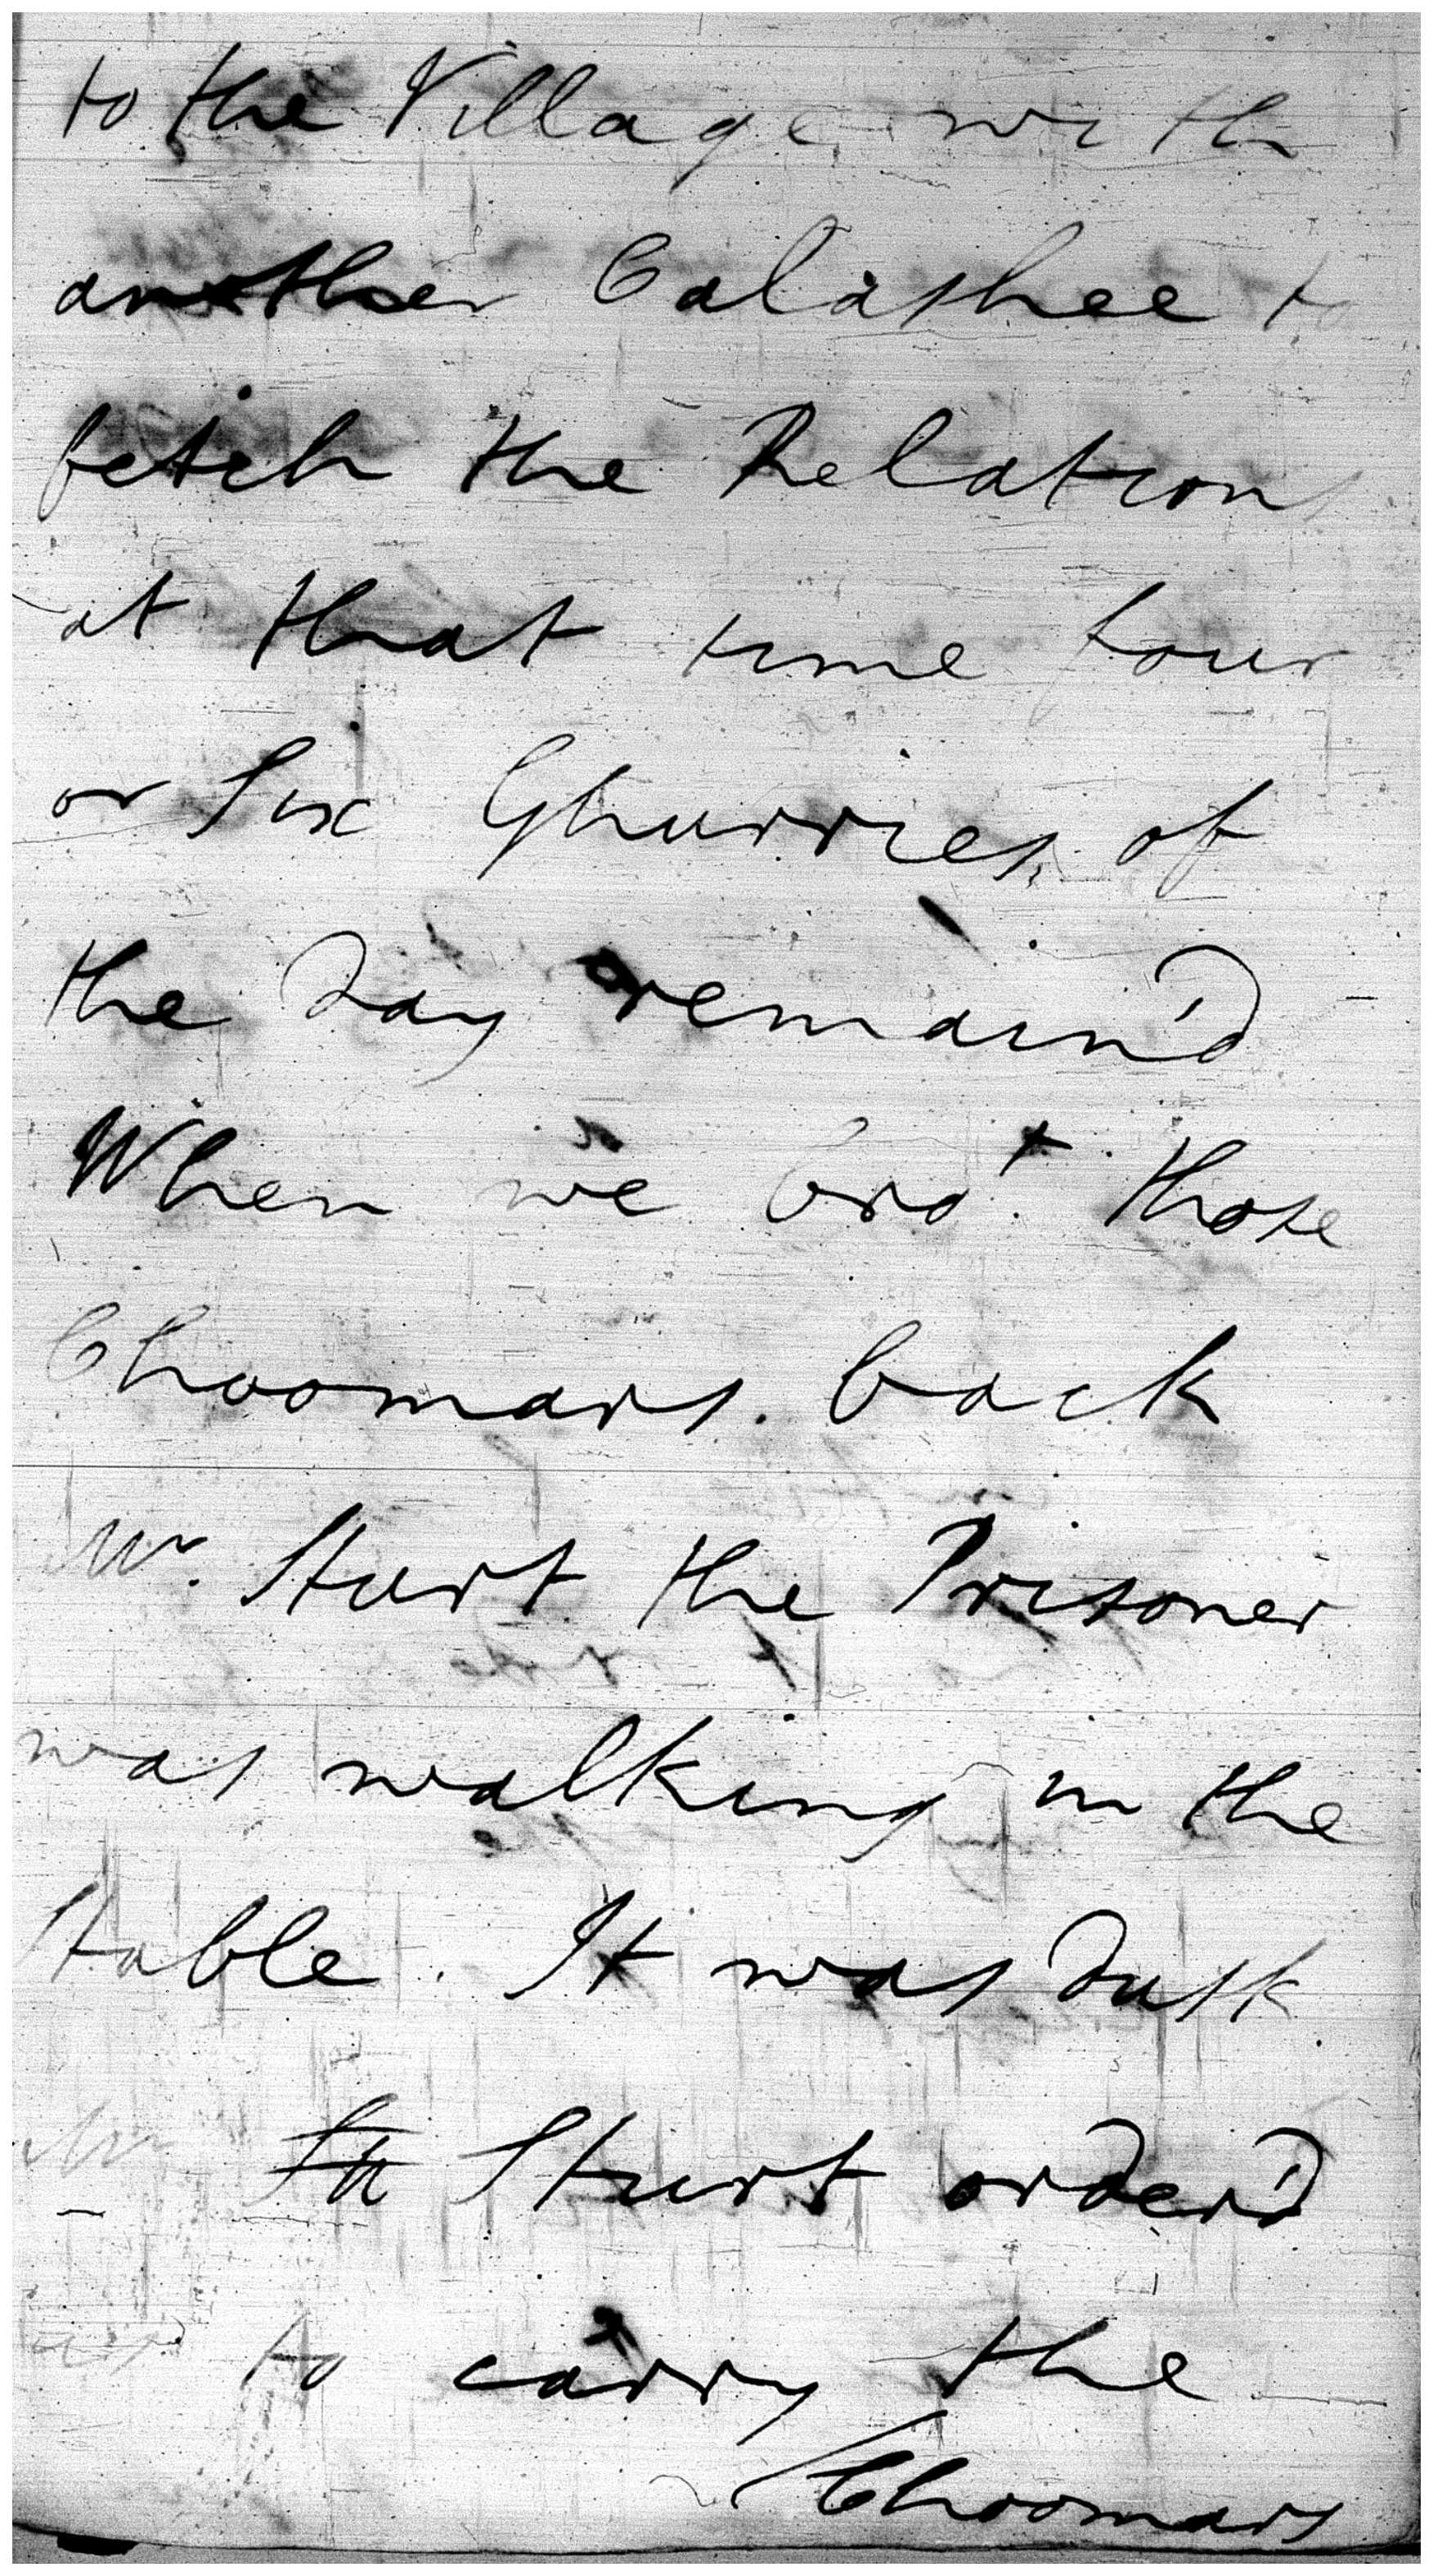 to the Village with
another Calashee to
fetch the Relations
at that time four
or Six Ghurries of
the Day remain'd
When we bro.t those
Choomars. back
Mr. Sturt the Prisoner
was walking in the
Stable. It was Dusk
Mr St Sturt order'd
us to carry the
Choomars